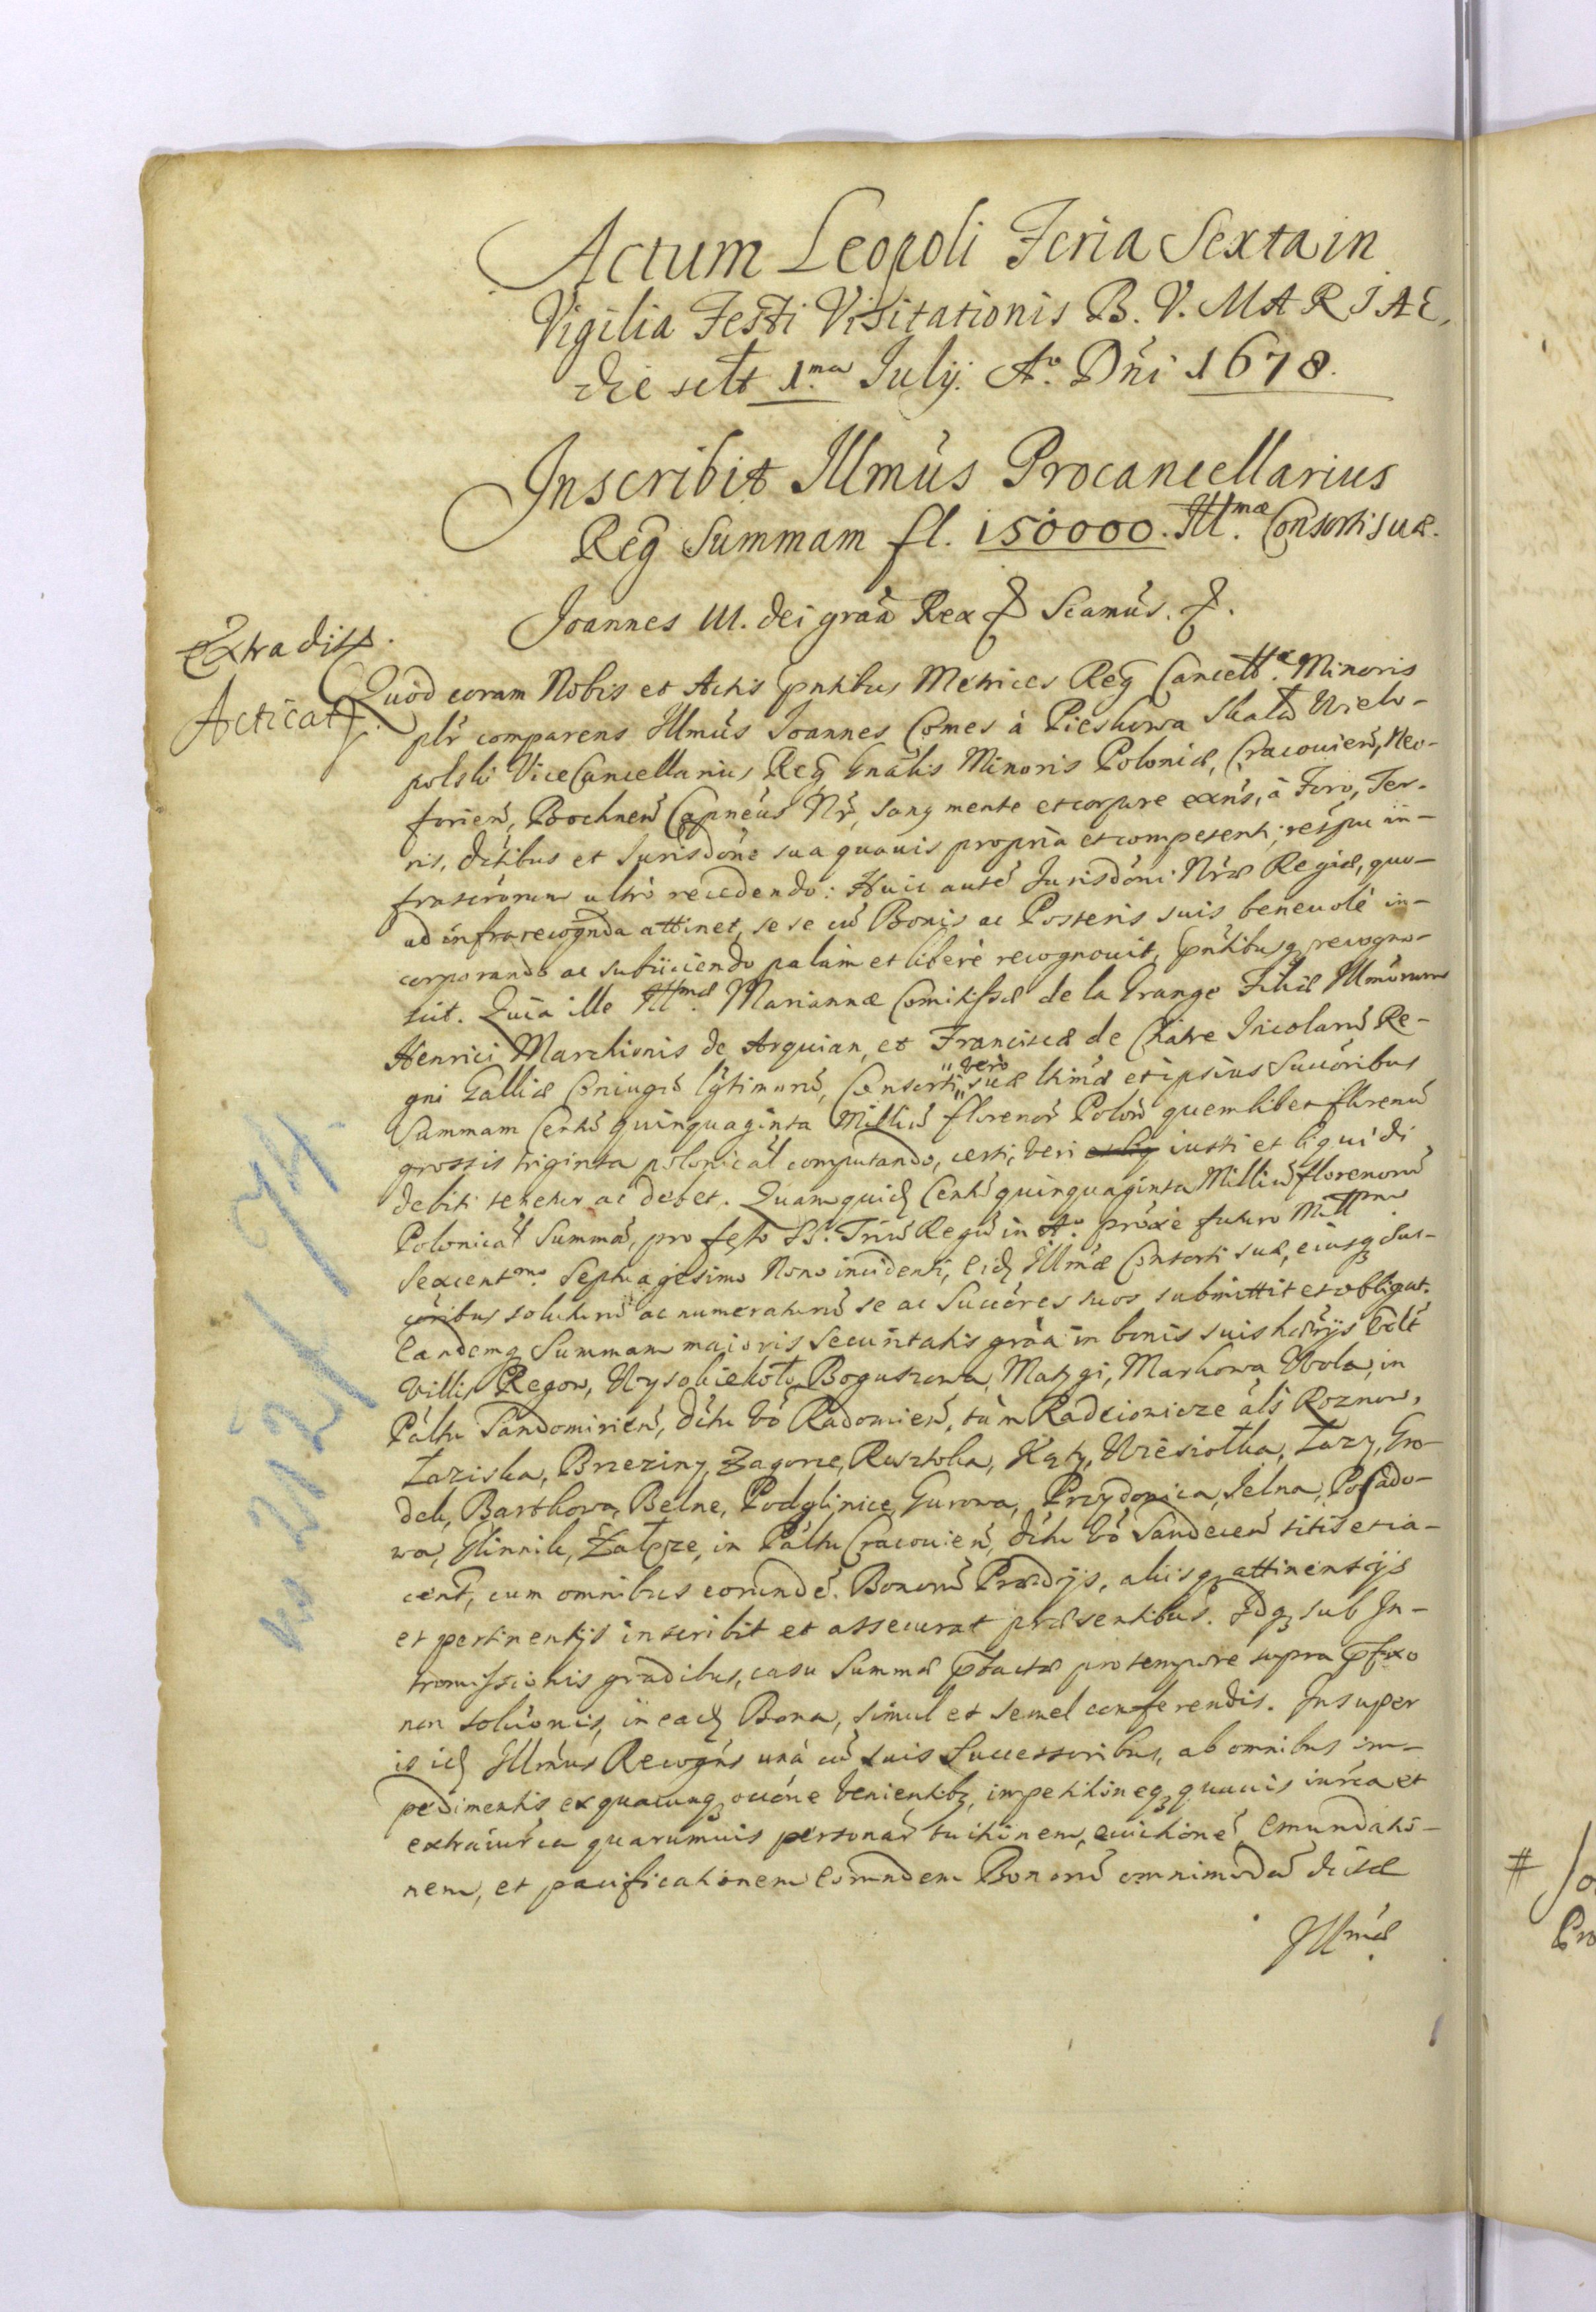 Actum Leopoli Feria Sexta in
Vigilia Festi Visitationis B. V. MARIAE,
die sclt 1.ma Julij. Ao. Dñi 1678.
Inscribit Illmus Procancellarius
Reg Summam fl. 150000. Ill.mæ Consorti suæ.
Joannes III. dei graã Rex & Scamus. &.
Extradit.
Acticat.
Quod coram Nobis et Actis pntibus Metrices Reg Cancell.æ Minoris
plr comparens Illmus Joannes Comes à Pieskowa Skała Wielo-
polski ViceCancellarius Reg Gnalis Minoris Poloniæ, Cracouien, Neo-
forien, Bochnen Capneus Nr, sanq mente et corpore exns, à Foro, Ter-
ris, dctibus et Jurisdone sua quauis propria et competenti, respu in-
frascrorum ultrò recedendo: Huic autē Jurisdoni Nræ Regiæ, quo-
ad infrarecognda attinet, se se cū Bonis ac Posteris suis beneuolè in-
corporando ac subiiciendo palàm et liberè recognouit, pntibusq recogno-
scit. Quia ille Ill.mæ Mariannæ Comitissæ de la Grange Filiæ Illmorum
Henrici Marchionis de Arquian, et Franciscæ de Chatre Incolarū Re-
gni Galliæ Coniugū lgtimorū, Consorti „verò„ suæ lthimæ et ipsius Succoribus
Summam Centū quinquaginta Milliū florenor Polon quemlibet florenū
grossis triginta polonical computando, certi, veri iusti et liquidi
debiti tenetur ac debet. Quam quid Centū quinquaginta Milliū florenorū
Polonical Summā, pro festo SS. Triū Regū in Ao. proxè futuro Mill.mo
Sexcent.mo Septuagesimo Nono incidenti, eid Illmæ Consorti suæ, eiusq Suc-
coribus soluturū ac numeraturū se ac Succores suos submittit et obligat.
Eandemq Summam maioris securitatis grãa in bonis suis hdrijs
Villis Regow, Wysokiekoło, Boguszowa, Matygi, Markowa Wola, in
Paltu Sandomirien, dctu vò Radomien, tùm Radcionicze als Roznow,
Łaziska, Brzeziny, Zagorze, Rusztoka, Kąty, Wiesiołka, Łazy, Gro-
dek, Bartkowa, Belne, Podglinice, Gurowa, Przydonica, Jelna, Posado-
wa, Glinnik, Załęze, in Paltu Cracouien, dctu vò Sandecen sitis et ia-
cent, cum omnibus eorundē. Bonorū Prædijs, alijsq attinentijs
et pertinentijs inscribit et assecurat præsentibus. Idq sub In-
tromissionis gradibus, casu Summæ ptactæ pro tempore supra pfixo
non soluonis, in ead Bona, simul et semel conferendis. Insuper
is id Illmus Recogns unà cū suis Successoribus, ab omnibus im-
pedimentis ex quacunq occone venientibq, impetitioneq quauis iurea et
extraiurea quarumuis personar tuitionem, euictionē, emundatio-
nem, et pacificationem eorundem Bonorū omnimodā dictæ
Illmæ